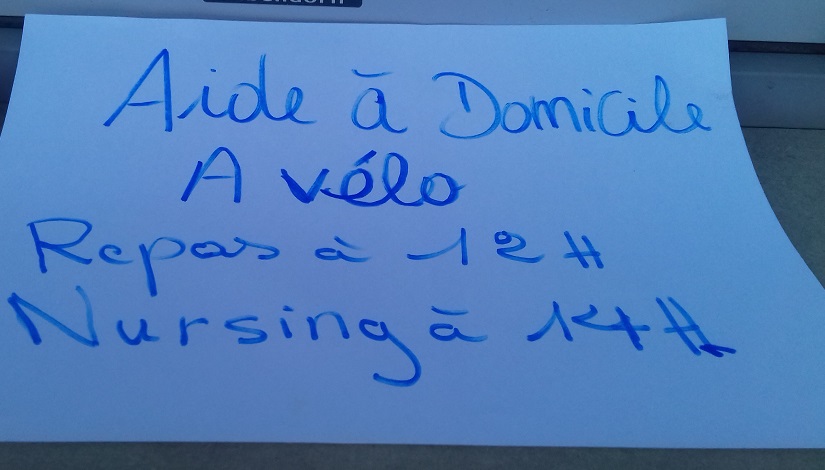 Aide à Domicile
A vélo
Repas à 12 H
Nursing à 14 H